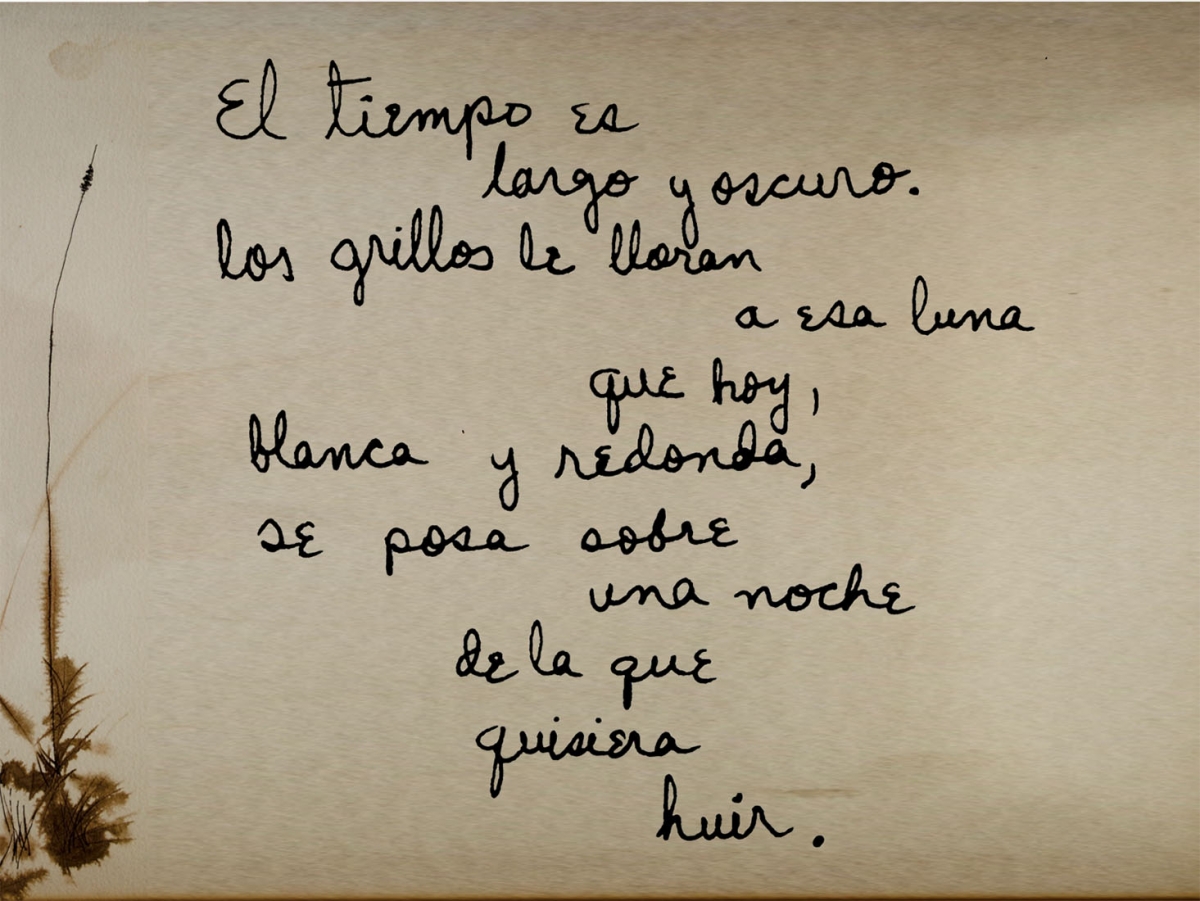 El tiempo es
largo y oscuro.
los grillos le lloran
a esa luna
que hoy,
blanca y redonda,
se posa sobre
una noche
de la que
quisiera
huir.